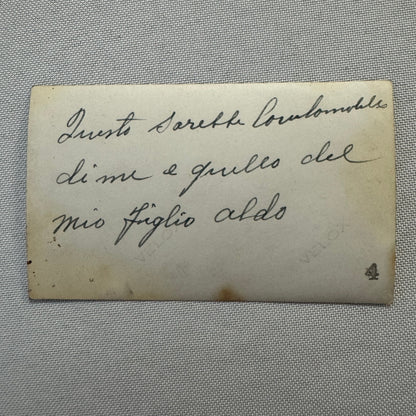 Questo sarebbe l'automobile
di me e quello del
mio figlio aldo
VELOX
VELOX
4